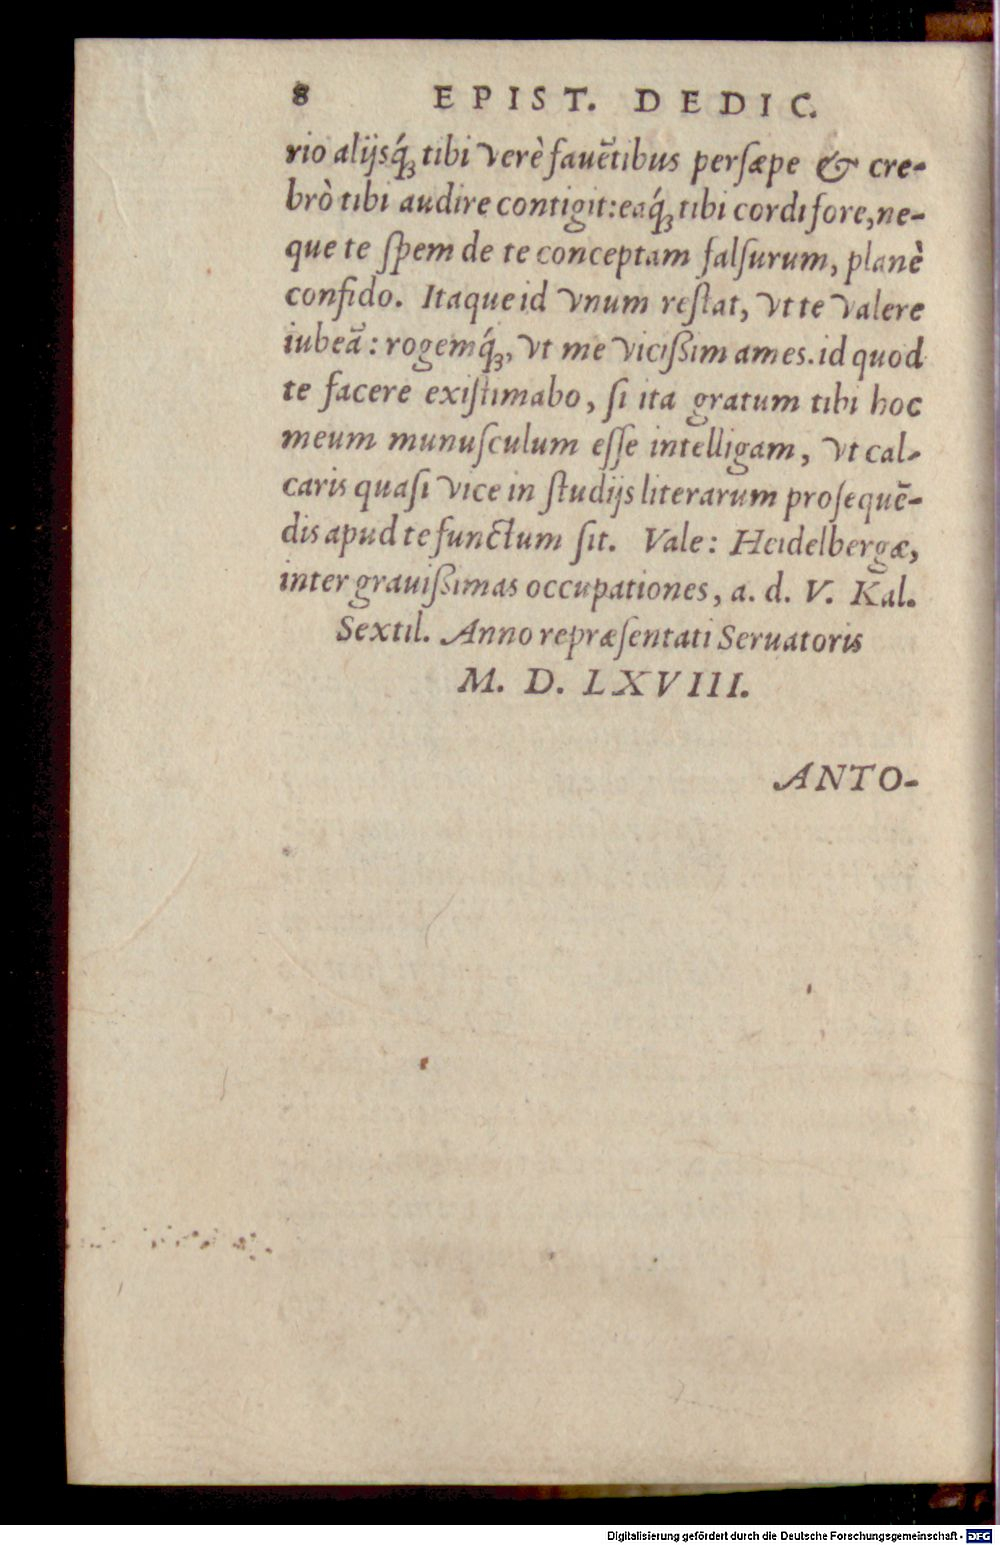 8 EPIST. DEDIC.
rio alijsq́; tibi verè fauẽtibus persæpe & cre-
brò tibi audire contigit: eaq́; tibi cordi fore, ne-
que te spem de te conceptam falsurum, planè
confido. Itaque id vnum restat, vt te valere
iubeã: rogemq́;, vt me vicißim ames. id quod
te facere existimabo, si ita gratum tibi hoc
meum munusculum esse intelligam, vt cal-
caris quasi vice in studijs literarum prosequẽ-
dis apud te functum sit. Vale: Heidelbergæ,
inter grauißimas occupationes, a. d. V. Kal.
Sextil. Anno repræsentati Seruatoris
M. D. LXVIII.
ANTO-
Digitalisierung gefördert durch die Deutsche Forschungsgemeinschaft - DFG